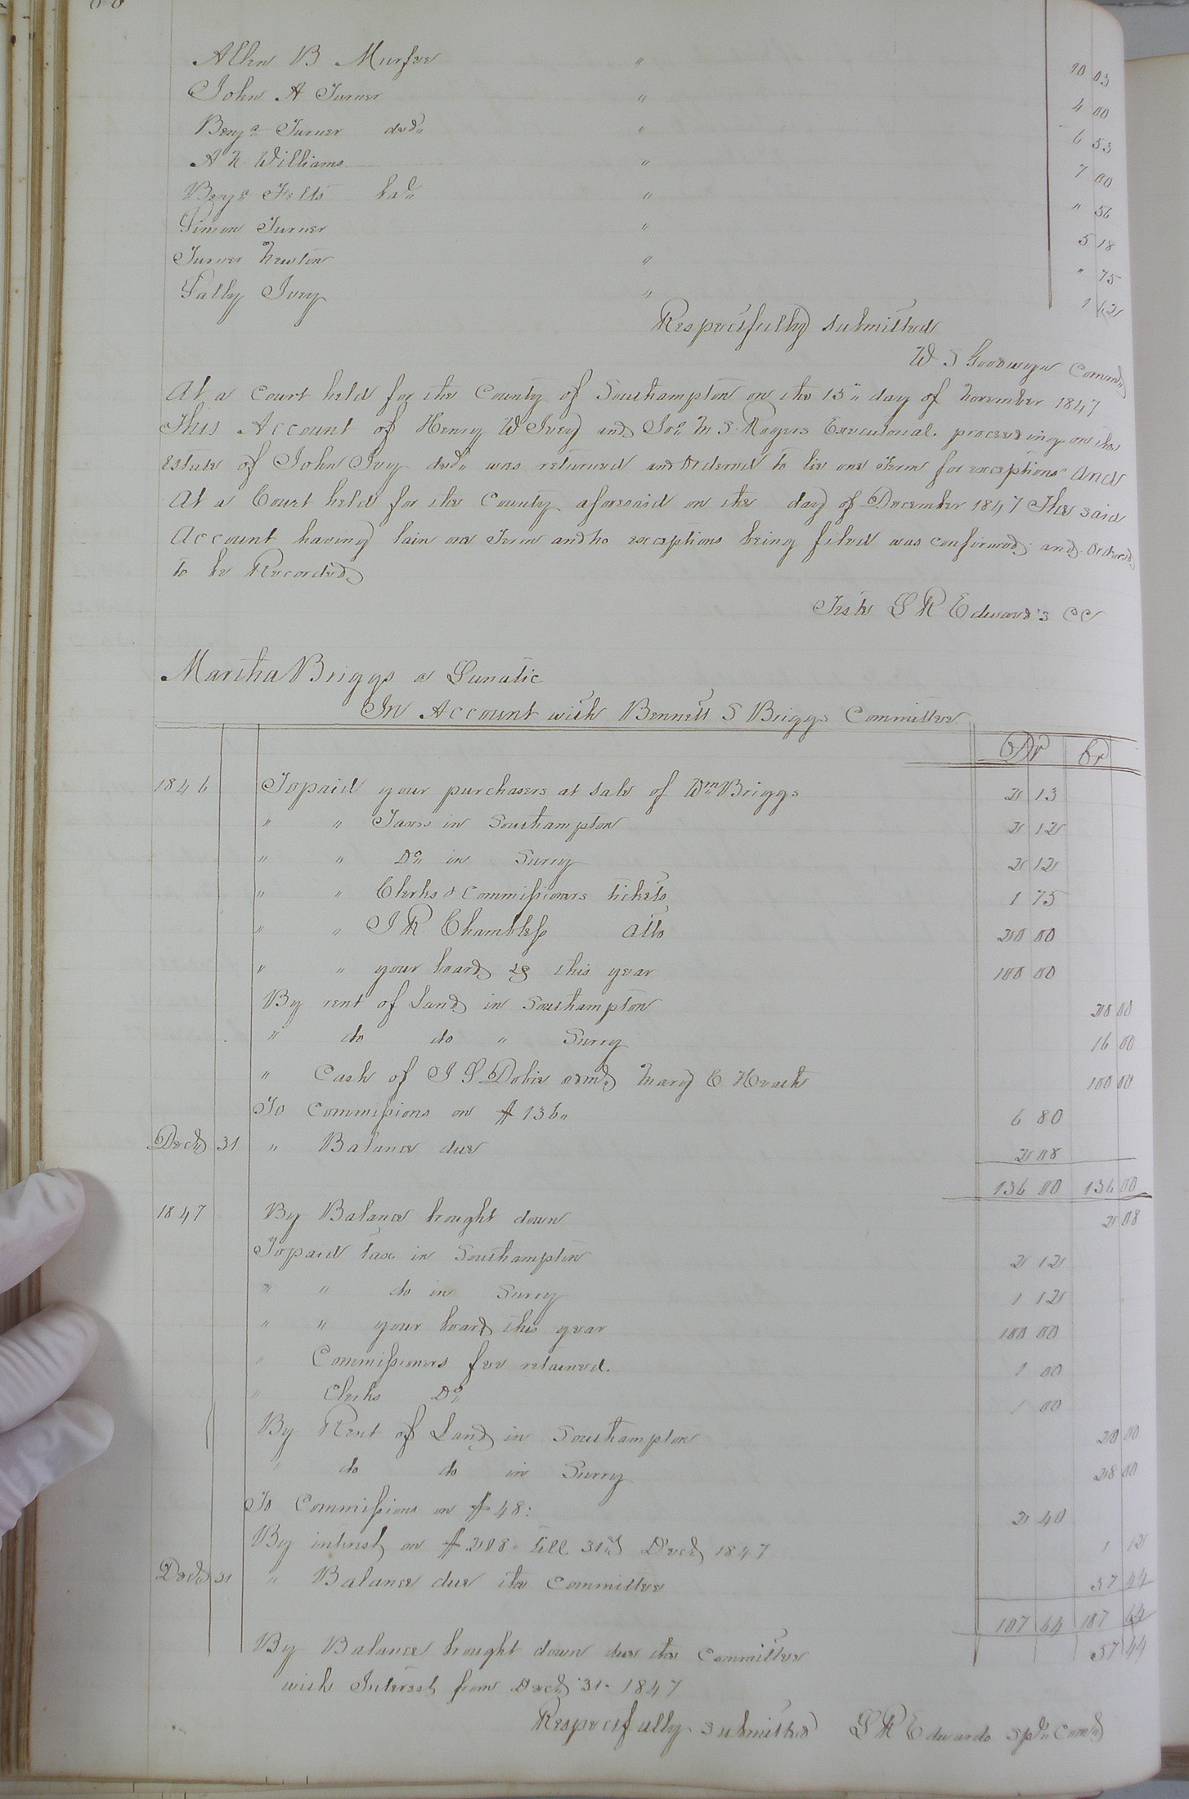 Allen B Murfee " 10 03
John A Turner " 4 00
Benja Turner decd " 6 53
A N Williams " 7 00
Benja Felts " " 56
Simon Turner " 5 18
Turner Newton " " 75
Sally Ivey " 1 62
Respectfully submitted
W S Goodwyn Commr
At a Court held for the County of Southampton on the 15th day of November 1847
This Account of Henry W Ivey and Jos M S Rogers Executorial proceedings on the
Estate of John Ivey decd was returned and Ordered to lie one Term for exceptions And
At a Court held for the County aforesaid on the day of December 1847 The said
Account having lain one Term and no exceptions being filed was confirmed and Ordered
to be Recorded
Teste L R Edwards CC
Martha Briggs a Lunatic
In Account with Bennett S Briggs Committee
Dr Cr
1846 To paid your purchases at sale of Wm Briggs 2 13
" " Taxes in Southampton 2 12
" " Do in Surry 2 12
" " Clerks & Commissioners tickets 1 75
" " J R Chambless atto 20 00
" " your board &c this year 100 00
By rent of Land in Southampton 20 00
" do do " Surry 16 00
" Cash of I L Dobie admr Mary C Heath 100 00
To Commissions on $136" 6 80
Decr 31 " Balance due 2 08
136 00 136 00
1847 By Balance brought down 2 08
To paid tax in Southampton 2 12
" " do in Surry 1 12
" " your board this year 100 00
" Commissioners fee retained. 1 00
" Clerks Do 1 00
By Rent of Land in Southampton 20 00
" do do in Surry 28 00
To Commissions on $48: 2 40
By interest on $2 08 till 31st Decr 1847 12
Decr 31 " Balance due the Committee 57 44
107 64 107 64
By Balance brought down due the Committee 57 44
with Interest from Decr 31 1847
Respectfully submitted L R Edwards Spl Comr